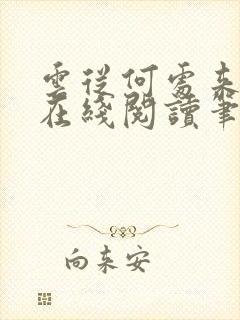 雲從何處來
在綫閱讀筆
向来安